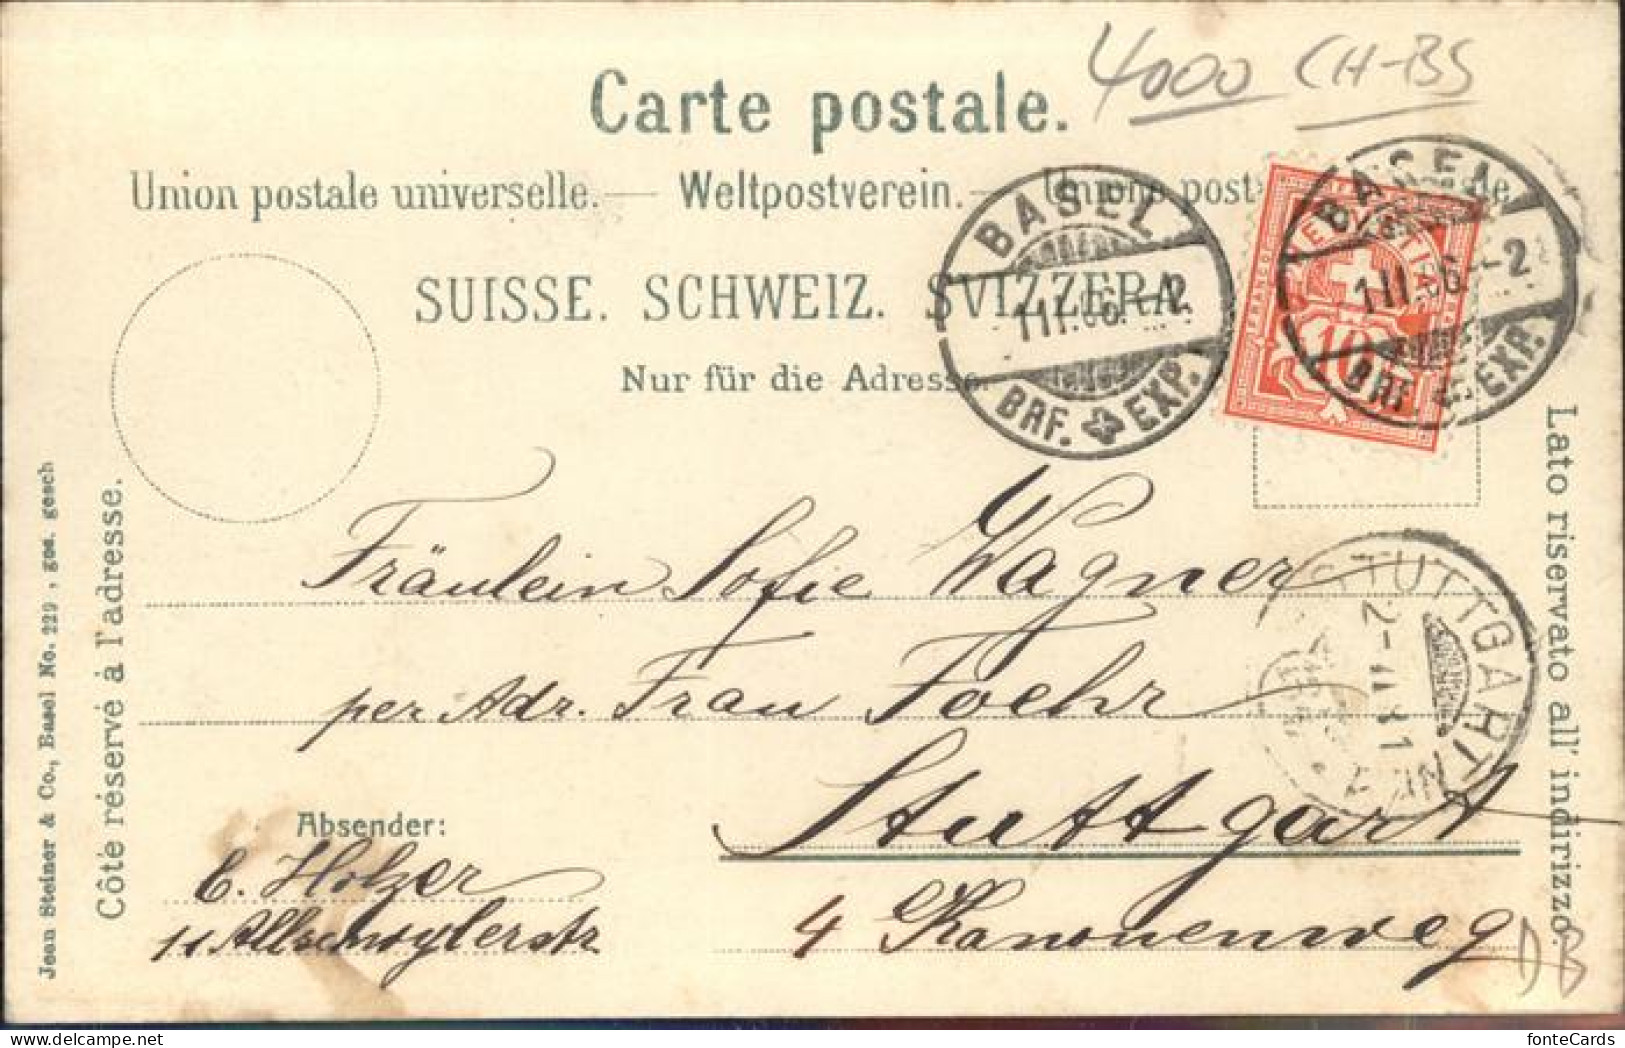 4000 CH-BS
Carte postale.
Union postale universelle. — Weltpostverein. — Unione post
SUISSE. SCHWEIZ. SVIZZERA.
Nur für die Adresse.
BASEL
1 II. 06. – 2
BRF. EXP.
FRANCO
10
BASEL
1 II. 06. – 2
BRF. EXP.
Fräulein Sofie Wagner
per Adr. Frau Foehr
Stuttgart
4 Kanonenweg
STUTTGART
Absender:
E. Holzer
11 Allschwylerstr
Côté réservé à l'adresse.
Jean Steiner & Co., Basel No. 229, ges. gesch
Lato riservato all' indirizzo.
DB
fonteCards